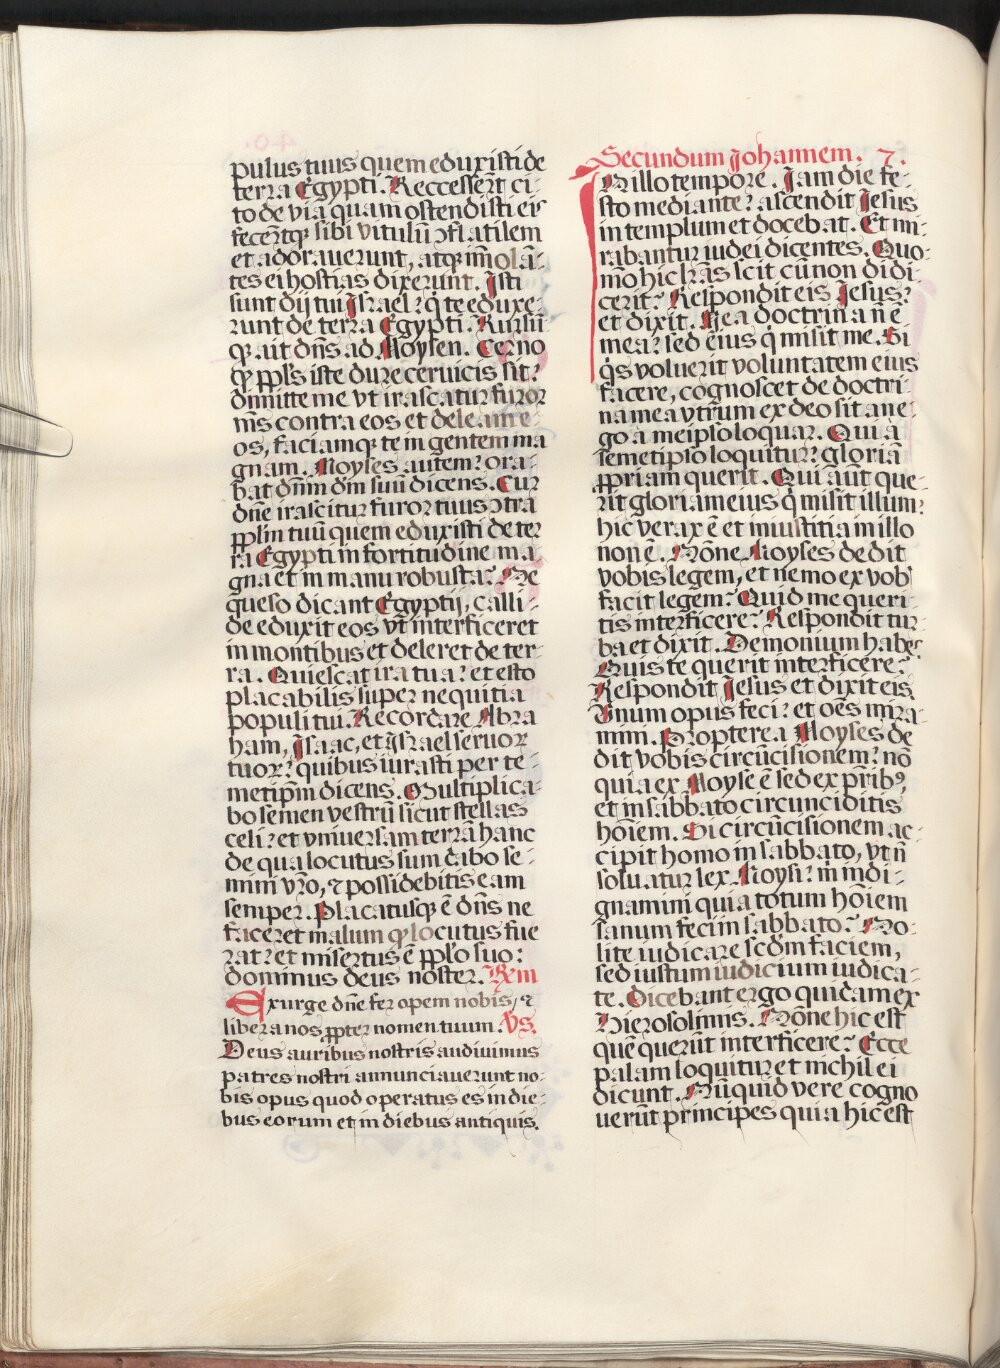 pulus tuus quem eduxisti de
terra Egypti. Reccesserūt ci-
to de via quam ostendisti eis
fecerūtqꝫ sibi vitulū ↄflatilem
et adorauerunt, atqꝫ īmolā-
tes ei hostias dixerunt. Isti
sunt dij tui Israel? q̇ te eduxe-
runt de terra Egypti. Rursū
qꝫ ait dn̄s ad Moysen. Cerno
qꝙ ppl̄s iste dure ceruicis sit?
dimitte me vt irascatur furor
me͂s contra eos et deleam e-
os, faciamqꝫ te in gentem ma
gnam. Moyses autem? ora-
bat dn̄m dm̄ suū dicens. Cur
dn̄e irascitur furor tuus ↄtra
ppl̄m tuū quem eduxisti de ter
ra Egypti in fortitudine ma-
gna et in manu robusta? Ne
queso dicant Egyptij, calli-
de eduxit eos vt interficeret
in montibus et deleret de ter-
ra. Quiescat ira tua? et esto
placabilis super nequitia
populi tui. Recordare Abra
ham, Isaac, et Israel seruoꝝ
tuoꝝ? quibus iurasti per te-
metip̄m dicens. Multiplica-
bo semen vestrū sicut stellas
celi? et vniuersam terrā hanc
de qua locutus sum dabo se-
mini vr̄o, ⁊ possidebitis eam
semper. Placatusqꝫ ē dn̄s ne
faceret malum qꝙ locutus fue
rat? et misertus ē ppl̄o suo?
dominus deus noster. Rm̄
Exurge dn̄e fer opem nobis, ⁊
libera nos ꝓpter nomen tuum. Vs.
Deus auribus nostris audiuimus
patres nostri annunciauerunt no-
bis opus quod operatus es in die-
bus eorum et in diebus antiquis.
Secundum Johannem. 7.
IN illo tempore. Iam die fe-
sto mediante? ascendit Jesus
in templum et docebat. Et mi-
rabantur iudei dicentes. Quo-
mō hic lr̄as scit cū non didi-
cerit? Respondit eis Jesus?
et dixit. Mea doctrina nō ē
mea? sed eius q̇ misit me. Si
q̇s voluerit voluntatem eius
facere, cognoscet de doctri-
na mea vtrum ex deo sit an e-
go a meipso loquar. Qui a
semetipso loquitur? gloriā
ꝓpriam querit. Qui aūt que-
rit gloriam eius q̇ misit illum?
hic verax ē et iniustitia in illo
non ē. Nōne Moyses dedit
vobis legem, et nemo ex vob̄
facit legem? Quid me queri-
tis interficere? Respondit tur-
ba et dixit. Demonium habes
Quis te querit interficere?
Respondit Jesus et dixit eis
Vnum opus feci? et oēs mira-
mini. Propterea Moyses de
dit vobis circūcisionem? nō
quia ex Moyse ē sed ex pr̄ibꝰ,
et in sabbato circunciditis
hoīem. Si circūcisionem ac-
cipit homo in sabbato, vt nō
soluatur lex Moysi? mi indi-
gnamini quia totum hoīem
sanum feci in sabbato? No-
lite iudicare scd̄m faciem,
sed iustum iudicium iudica-
te. Dicebant ergo quidam ex
Hierosolimis. Nōne hic est
quē querūt interficere? Ecce
palam loquitur et nichil ei
dicunt. Nūquid vere cogno
uerūt principes quia hic est